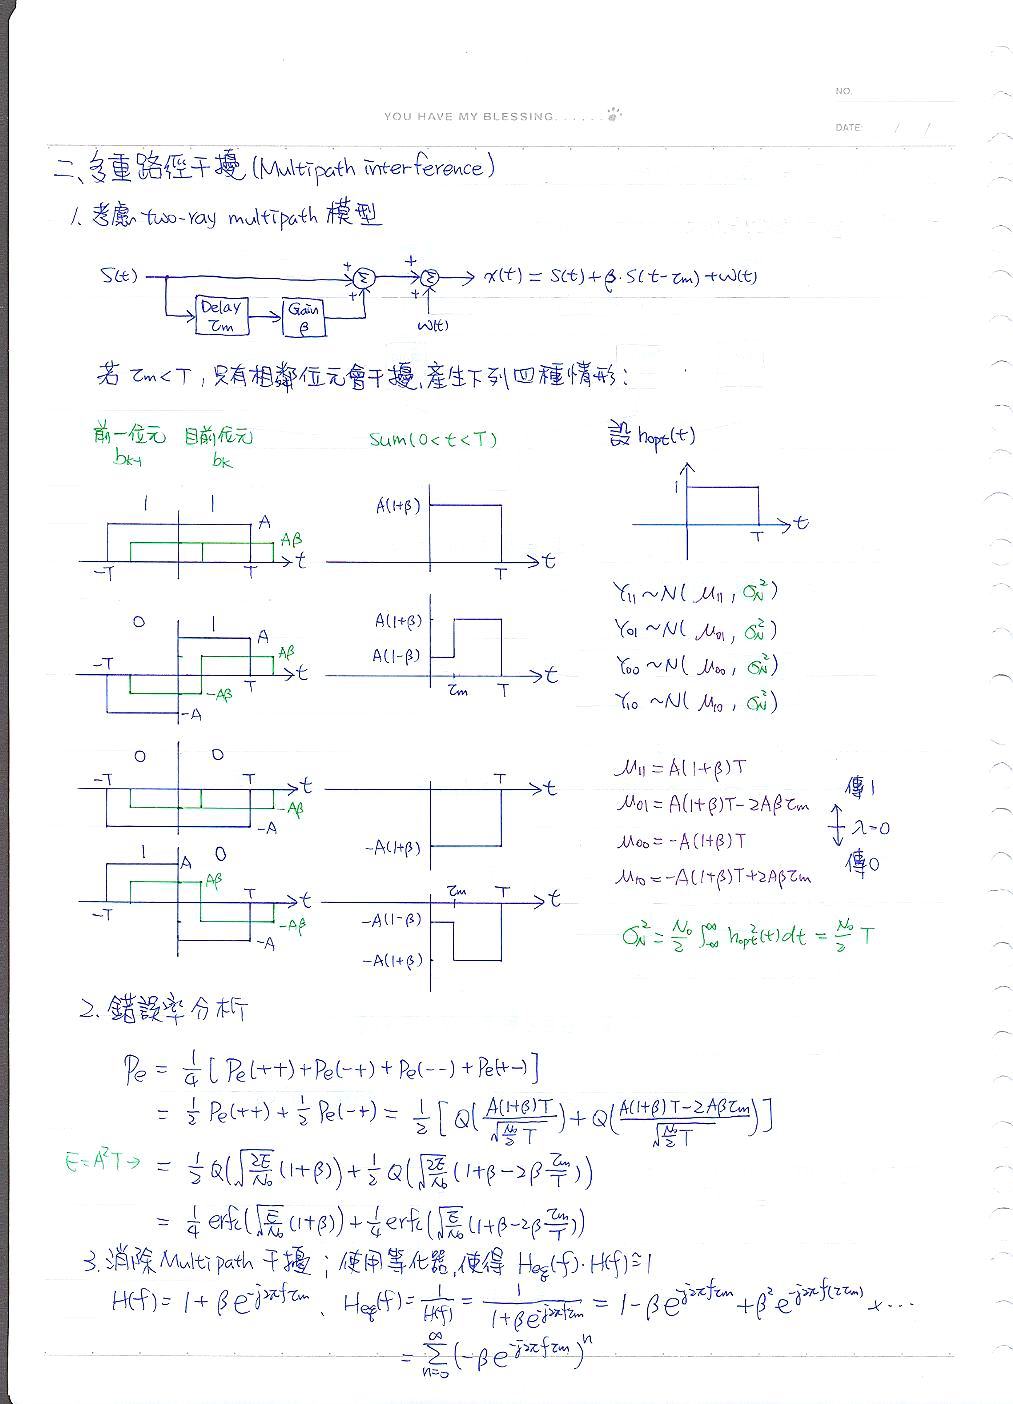 NO.
YOU HAVE MY BLESSING......
DATE: / /
二、多重路徑干擾(Multipath interference)
1. 考慮 two-ray multipath 模型
S(t) + Σ + Σ x(t) = S(t)+β·S(t-τm)+w(t)
Delay τm Gain β + + w(t)
若 τm<T,只有相鄰位元會干擾,產生下列四種情形:
前一位元 bk-1 目前位元 bk Sum(0<t<T) 設 hopt(t)
1 1 A Aβ -T T t
A(1+β) T t
1 T t
0 1 A Aβ -T T t -Aβ -A
A(1+β) A(1-β) τm T t
Y11~N(μ11, σN²)
Y01~N(μ01, σN²)
Y00~N(μ00, σN²)
Y10~N(μ10, σN²)
0 0 -T T t -Aβ -A
T t -A(1+β)
1 0 A Aβ -T T t -Aβ -A
τm T t -A(1-β) -A(1+β)
μ11=A(1+β)T
μ01=A(1+β)T-2Aβτm
μ00=-A(1+β)T
μ10=-A(1+β)T+2Aβτm
傳1
λ=0
傳0
σN² = N0/2 ∫-∞^∞ hopt²(t)dt = N0/2 T
2. 錯誤率分析
Pe = 1/4 [Pe(++)+Pe(-+)+Pe(--)+Pe(+-)]
= 1/2 Pe(++) + 1/2 Pe(-+) = 1/2 [Q(A(1+β)T/√(N0/2 T)) + Q(A(1+β)T-2Aβτm/√(N0/2 T))]
E=A²T→ = 1/2 Q(√(2E/N0)(1+β)) + 1/2 Q(√(2E/N0)(1+β-2β τm/T))
= 1/4 erfc(√(E/N0)(1+β)) + 1/4 erfc(√(E/N0)(1+β-2β τm/T))
3. 消除Multipath干擾;使用等化器,使得 Heq(f)·H(f)≅1
H(f)=1+βe^-j2πfτm、Heq(f)=1/H(f)=1/(1+βe^-j2πfτm)=1-βe^-j2πfτm+β²e^-j2πf(2τm)+···
=Σn=0^∞(-βe^-j2πfτm)^n